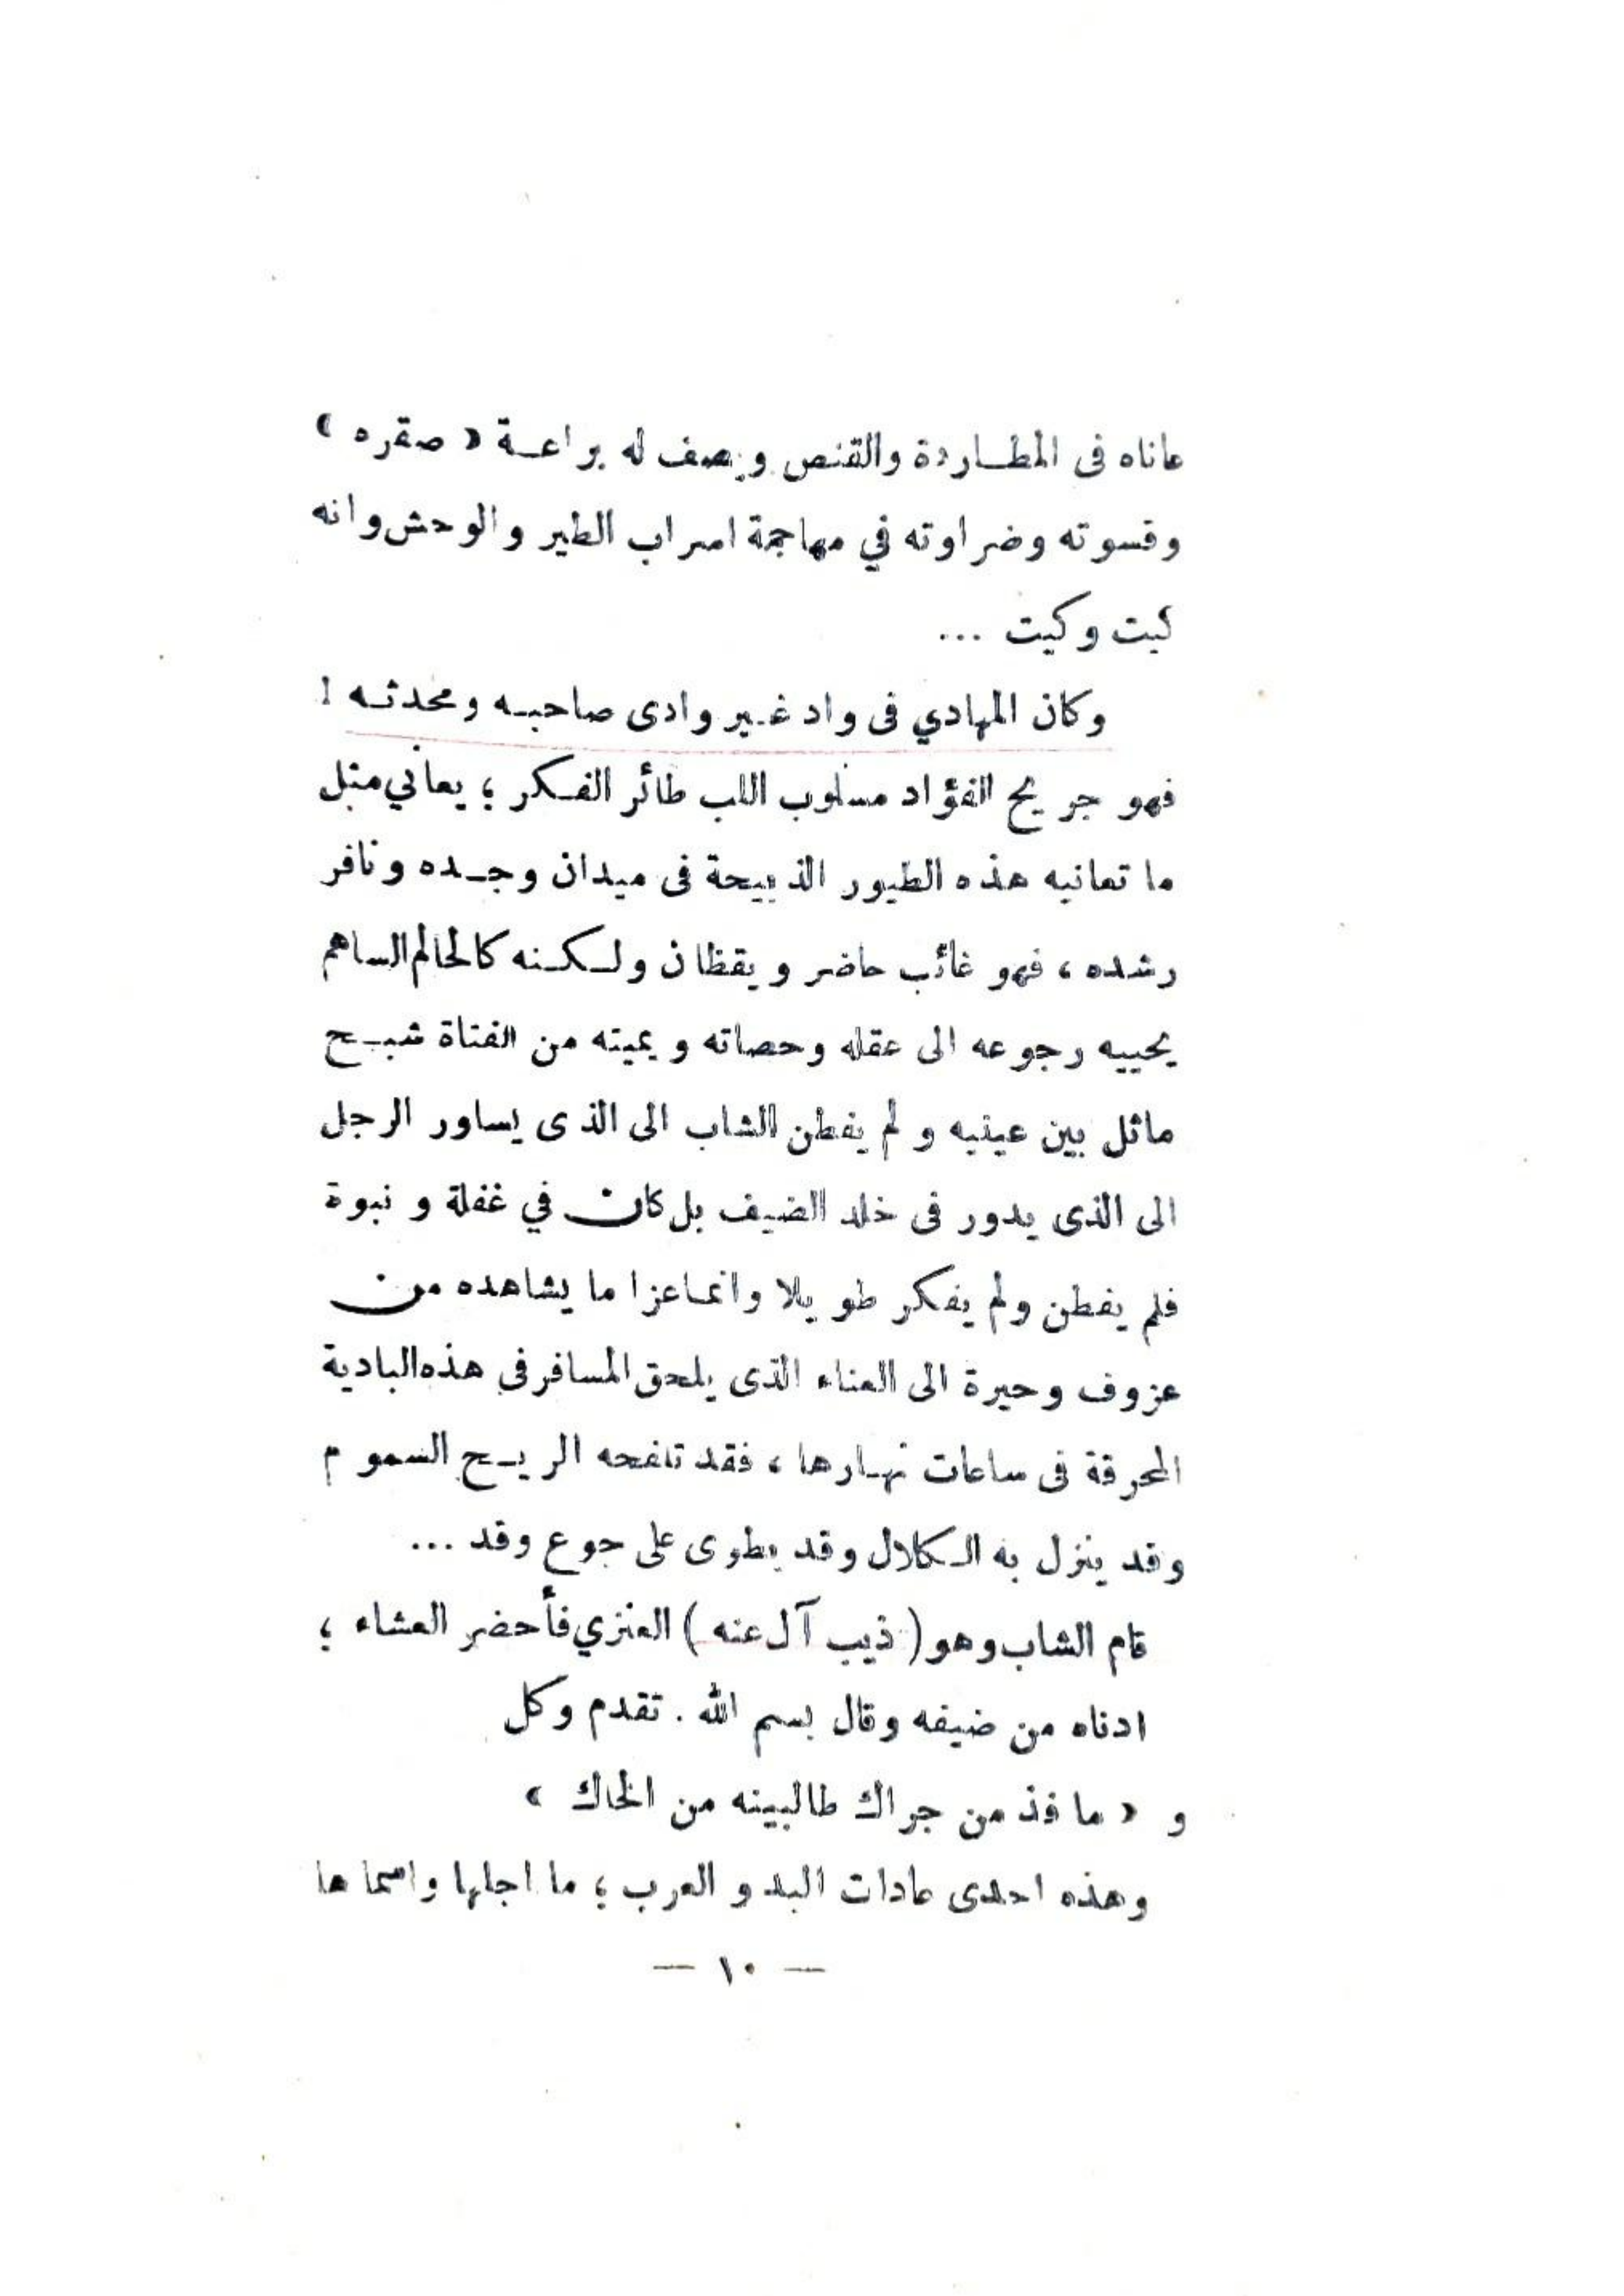 عاناه فى المطاردة والقنص ويصف له براعة « صقره »
وقسوته وضراوته في مهاجمة اسراب الطير والوحش وانه
كيت وكيت ...
وكان المهادي فى واد غير وادى صاحبه ومحدثه !
فهو جريح الفؤاد مسلوب اللب طائر الفكر ؛ يعاني مثل
ما تعانيه هذه الطيور الذبيحة فى ميدان وجده ونافر
رشده ، فهو غائب حاضر ويقظان ولكنه كالحالم الساهم
يحييه رجوعه الى عقله وحصاته ويميته من الفتاة شبح
ماثل بين عينيه ولم يفطن الشاب الى الذى يساور الرجل
الى الذى يدور فى خلد الضيف بل كان في غفلة ونبوة
فلم يفطن ولم يفكر طويلا وانما عزا ما يشاهده من
عزوف وحيرة الى العناء الذى يلحق المسافر في هذه البادية
المحرقة فى ساعات نهارها ، فقد تلفحه الريح السموم
وقد ينزل به الكلال وقد يطوى على جوع وقد ...
قام الشاب وهو ( ذيب آل عنه ) العنزي فأحضر العشاء ؛
ادناه من ضيفه وقال بسم الله . تقدم وكل
و « ما فذ من جراك طالبينه من الخاك »
وهذه احدى عادات البدو العرب ؛ ما اجلها واسماها
— ١٠ —